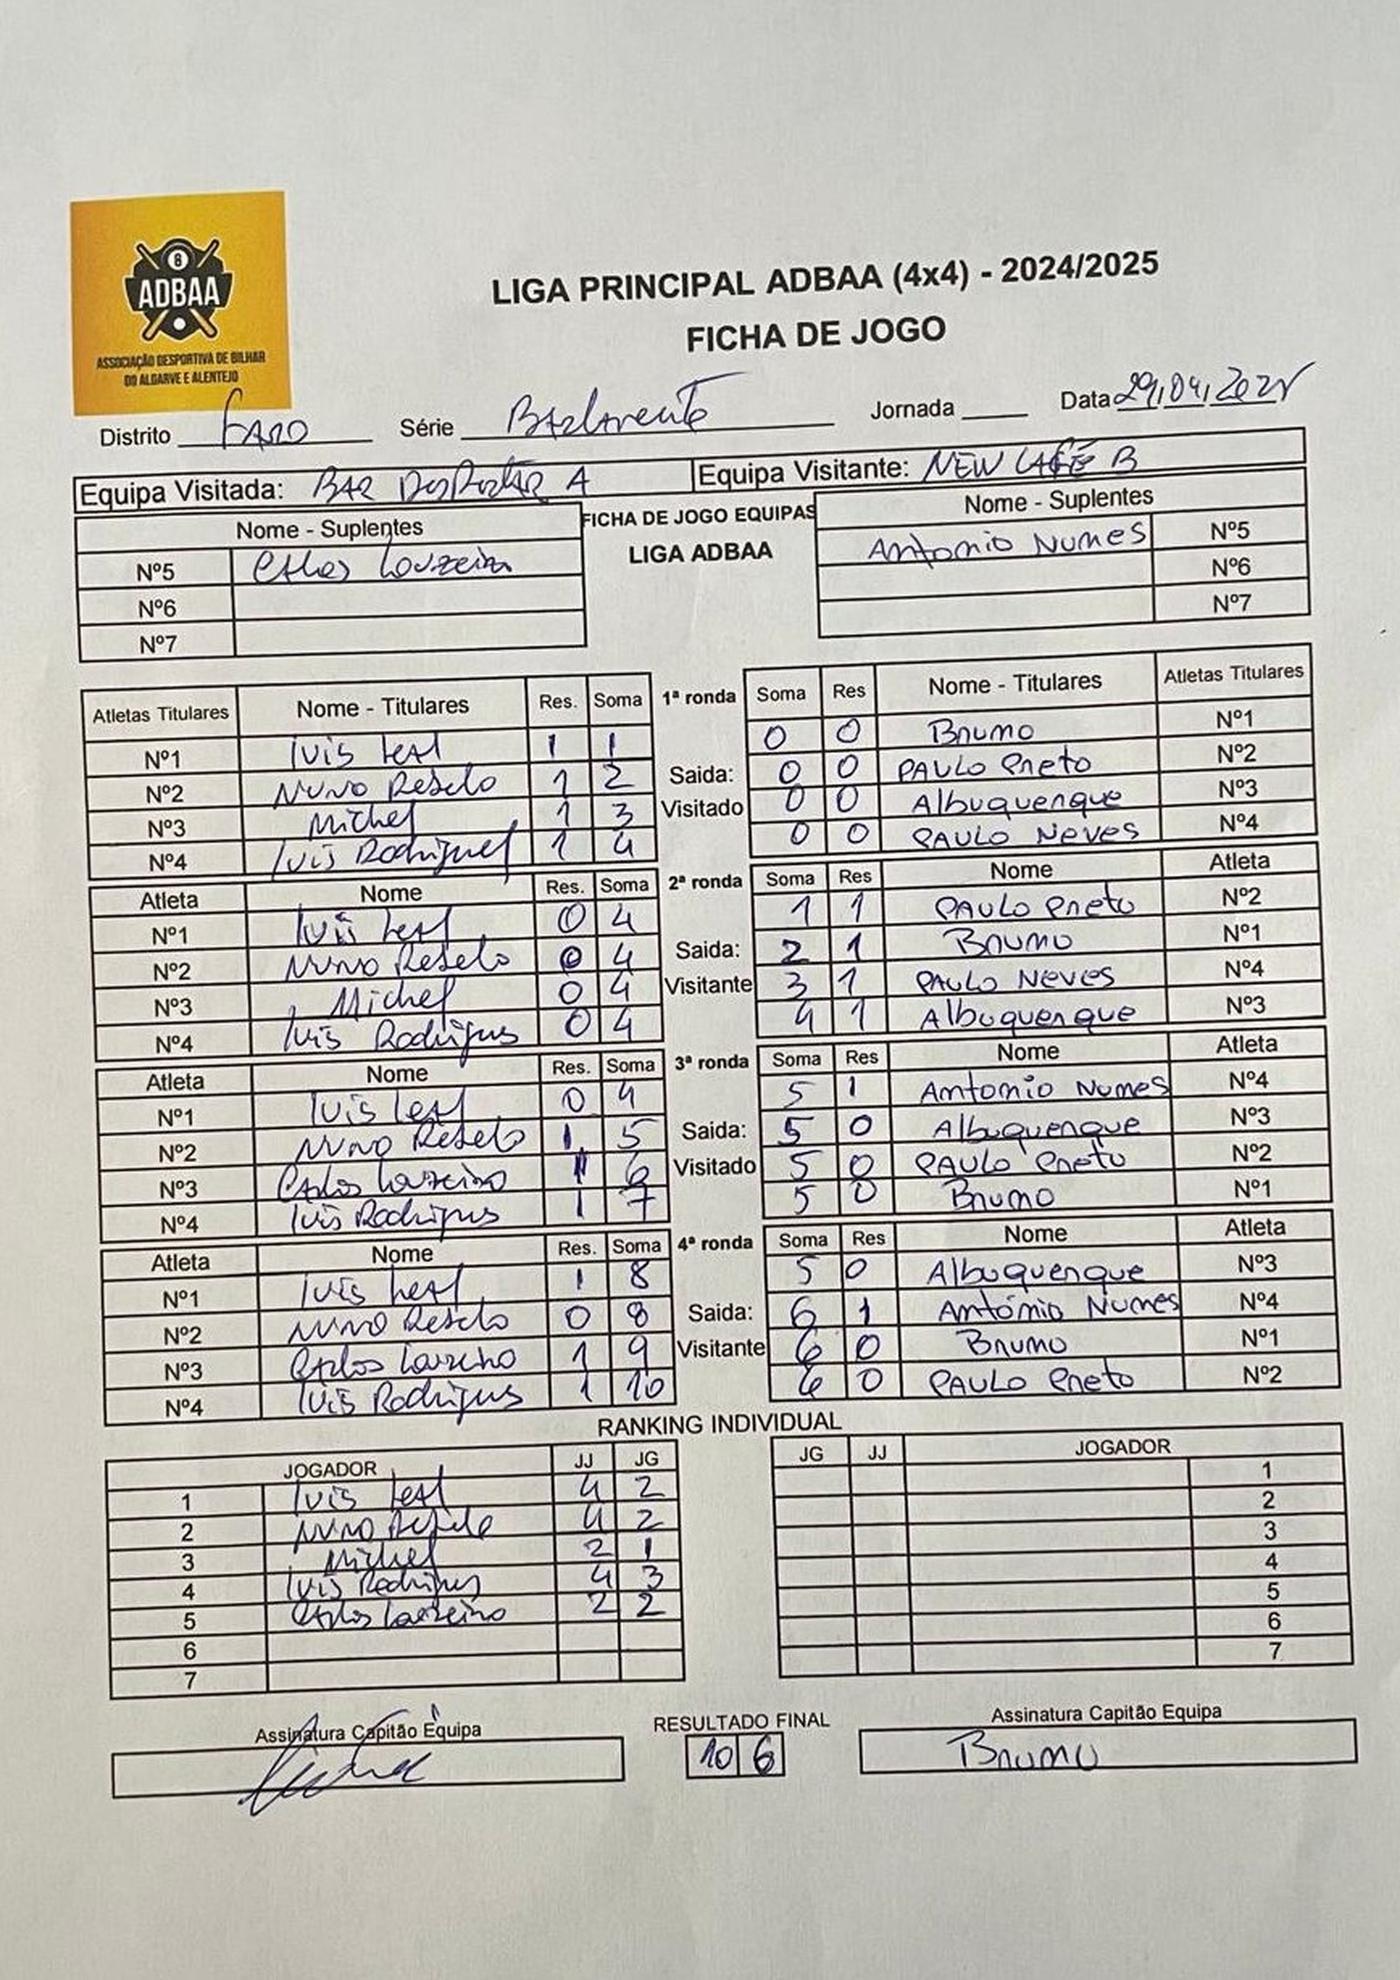 8
ADBAA
ASSOCIAÇÃO DESPORTIVA DE BILHAR
DO ALGARVE E ALENTEJO
LIGA PRINCIPAL ADBAA (4x4) - 2024/2025
FICHA DE JOGO
Distrito FARO Série Barlavento Jornada Data 29/04/2025
Equipa Visitada: BAR A Equipa Visitante: NEW CAFÉ B
Nome - Suplentes FICHA DE JOGO EQUIPAS Nome - Suplentes
LIGA ADBAA
Nº5 Carlos Loureiro Antonio Numes Nº5
Nº6 Nº6
Nº7 Nº7
Atletas Titulares Nome - Titulares Res. Soma 1ª ronda Soma Res Nome - Titulares Atletas Titulares
Nº1 luis leal 1 1 0 0 Bruno Nº1
Nº2 Nuno Rebelo 1 2 Saida: 0 0 PAULO Preto Nº2
Nº3 Michel 1 3 Visitado 0 0 Albuquerque Nº3
Nº4 luis Rodrigues 1 4 0 0 PAULO Neves Nº4
Atleta Nome Res. Soma 2ª ronda Soma Res Nome Atleta
Nº1 luis leal 0 4 1 1 PAULO Preto Nº2
Nº2 Nuno Rebelo 0 4 Saida: 2 1 Bruno Nº1
Nº3 Michel 0 4 Visitante 3 1 PAULO Neves Nº4
Nº4 luis Rodrigus 0 4 4 1 Albuquerque Nº3
Atleta Nome Res. Soma 3ª ronda Soma Res Nome Atleta
Nº1 luis leal 0 4 5 1 Antonio Numes Nº4
Nº2 Nuno Rebelo 1 5 Saida: 5 0 Albuquerque Nº3
Nº3 Carlos Loureiro 1 6 Visitado 5 0 PAULO Preto Nº2
Nº4 luis Rodrigus 1 7 5 0 Bruno Nº1
Atleta Nome Res. Soma 4ª ronda Soma Res Nome Atleta
Nº1 luis leal 1 8 5 0 Albuquerque Nº3
Nº2 Nuno Rebelo 0 8 Saida: 6 1 António Numes Nº4
Nº3 Carlos Loureiro 1 9 Visitante 6 0 Bruno Nº1
Nº4 luis Rodrigus 1 10 6 0 PAULO Preto Nº2
RANKING INDIVIDUAL
JOGADOR JJ JG JG JJ JOGADOR
1 luis leal 4 2 1
2 Nuno Rebelo 4 2 2
3 Michel 2 1 3
4 luis Rodrigus 4 3 4
5 Carlos Loureiro 2 2 5
6 6
7 7
Assinatura Capitão Equipa RESULTADO FINAL Assinatura Capitão Equipa
10 6 Bruno